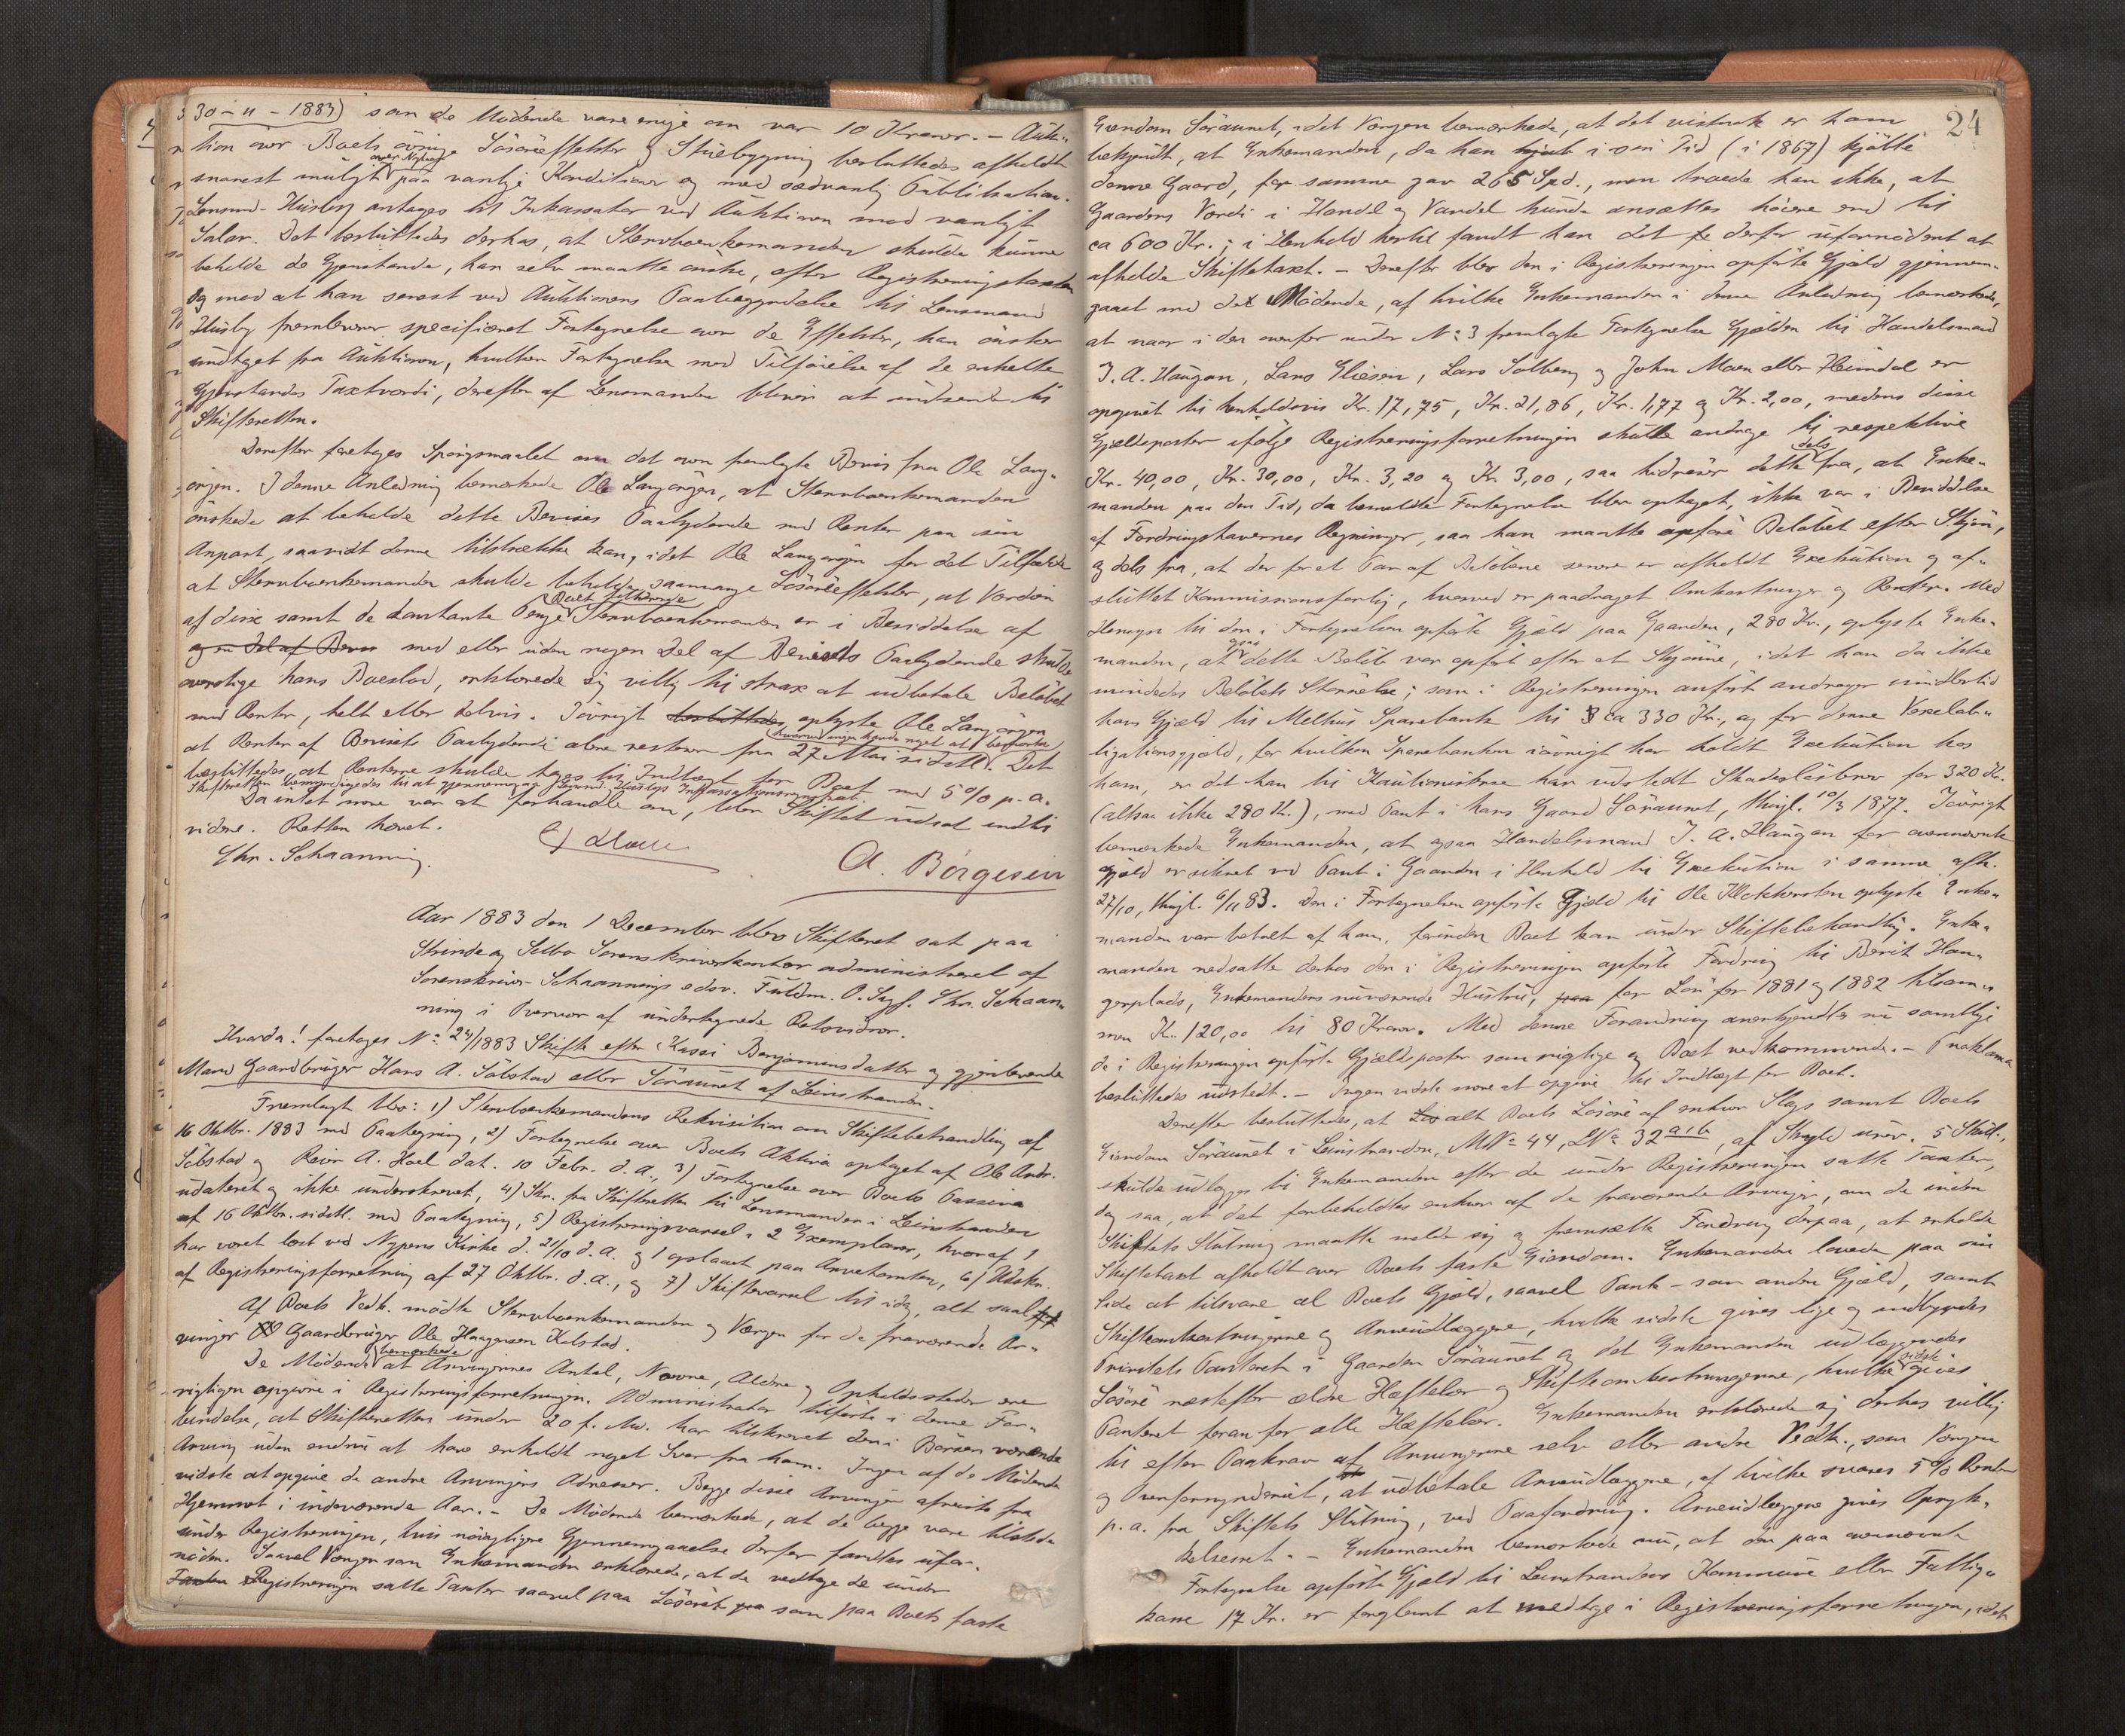 30-11-1883) som de Mödende vare enige om var 10 Kroner. — Auk-
tion over Boets övrige Lösöreeffekter og Skiebygning besluttedes afholdt
snarest muligt over Nyhus paa vanlige Konditioner og med sædvanlig Publikation.
Lensmd. Husby antages til Inkassator ved Auktionen mod vanligt
Salær. Det besluttedes derhos, at Stervboenkemanden skulde kunne
beholde de Gjenstande, han selv maatte önske, efter Registreringstaxten
og mod at han senest ved Auktionens Paabegyndelse til Lensmand
Husby fremleverer specificeret Fortegnelse over de Effekter, han önsker
undtaget fra Auktionen, hvilken Fortegnelse med Tilföielse af de enkelte
Gjenstandes Taxtværdi, derefter af Lensmanden bliver at indsende til
Skifteretten.
Derefter foretoges Spörgsmaalet om det oven fremlagte Bevis fra Ole Lang-
örgen. I denne Anledning bemærkede Ole Langörgen, at Stervboenkemanden
önskede at beholde dette Bevises Paalydende med Renter paa sin
Anpart, saavidt denne tilstrække kan, idet Ole Langörgen for det Tilfælde
at Stervboenkemanden skulde beholde saamange Lösöreeffekter, at Værdien
af disse samt de kontante Penge Boet tilhörende Stervboenkemanden er i Besiddelse af
og en Del af Bevis med eller uden nogen Del af Bevisets Paalydende skulde
overstige hans Boeslod, erklærede sig villig til strax at udbetale Belöbet
med Renter, helt eller delvis. Iövrigt besluttedes oplyste Ole Langörgen
at Renter af Bevisets Paalydende alene resterer fra 27 Mai sidstl. hvorved ingen havde noget at bemærke. Det
besluttedes, at Renterne skulde tages til Indtægt for Boet med 5% p.a.
Skifteretten bemyndigedes til at gjennemgaa Lensmd. Husbys Inkassationsregnskab.
Da intet mere var at forhandle om, blev Skiftet udsat indtil
videre. Retten hævet.
Chr. Schaanning.
A. Börgesen
Aar 1883 den 1 December blev Skifteret sat paa
Strinda og Selbo Sorenskriverkontor administreret af
Sorenskriver Schaannings edsv. Fuldm. O. Sagf. Chr. Schaan-
ning i Overvær af undertegnede Retsvidner.
Hvorda! foretoges No 24/1883 Skifte efter Kassi Benjaminsdatter og gjenlevende
Mand Gaardbruger Hans A. Söbstad eller Söraunet af Leinstranden.
Fremlagt blev: 1) Stervboenkemandens Rekvisition om Skiftebehandling af
16 Oktbr. 1883 med Paategning, 2) Fortegnelse over Boets Aktiva optaget af Ole Andr.
Söbstad og Reier A. Hoel dat. 10 Febr. d.a., 3) Fortegnelse over Boets Passiva
udateret og ikke underskrevet, 4) Skr. fra Skifteretten til Lensmanden i Leinstranden
af 16 Oktbr. sidstl. med Paategning, 5) Registreringsvarsel i 2 Exemplarer, hvoraf 1
har været læst ved Nypens Kirke d. 21/10 d.a. og 1 opslaaet paa Arvetomten, 6) Udskr.
af Registreringsforretning af 27 Oktbr. d.a., og 7) Skiftevarsel til idag, alt saal.
Af Boets Vedk. mödte Stervboenkemanden og Værgen for de fraværende Ar-
vinger Gaardbruger Ole Haagensen Kolstad.
De Mödende bemærkede at Arvingernes Antal, Navne, Aldre og Opholdssteder ere
rigtigen opgivne i Registreringsforretningen. Administrator tilförte i denne For-
bindelse, at Skifteretten under 20 f. Md. har tilskrevet den i Börsen værende
Arving uden endnu at have erholdt noget Svar fra ham. Ingen af de Mödende
vidste at opgive de andre Arvingers Adresser. Begge disse Arvinger afreiste fra
Hjemmet i indeværende Aar. — De Mödende bemærkede, at de begge vare tilstede
under Registreringen, hvis nöiagtigere Gjennemgaaelse derfor fandtes ufor-
nöden. Saavel Værgen som Enkemanden erklærede, at de vedtoge de under
Taxten Registreringen satte Taxter saavel paa Lösöret paa som paa Boets faste
24
Eiendom Söraunet, idet Værgen bemærkede, at det vistnok er ham
bekjendt, at Enkemanden, da han kjöbt i sin Tid (i 1867) kjöbte
denne Gaard, for samme gav 265 Spd., men troede han ikke, at
Gaardens Værdi i Handel og Vandel kunde ansættes höiere end til
ca 600 Kr.; i Henhold hertil fandt han det derfor ufornödent at
afholde Skiftetaxt. — Derefter blev den i Registreringen opförte Gjæld gjennem-
gaaet med de Mödende, af hvilke Enkemanden i denne Anledning bemærkede,
at naar i den ovenfor under No 3 fremlagte Fortegnelse Gjælden til Handelsmand
J. A. Haugan, Lars Eliesen, Lars Solberg og John Moen eller Heimdal er
opgivet til henholdsvis Kr. 17,75, Kr. 21,86, Kr. 1,77 og Kr. 2,00, medens disse
Gjældsposter ifölge Registreringsforretningen skulle andrage til respektive
Kr. 40,00, Kr. 30,00, Kr. 3,20 og Kr 3,00, saa hidrörer dette dels fra, at Enke-
manden paa den Tid, da bemeldte Fortegnelse blev optaget, ikke var i Besiddelse
af Fordringshavernes Regninger, saa han maatte opföre Belöbet efter Skjön,
og dels fra, at der for et Par af Belöbene senere er afholdt Exekution og af-
sluttet Kommissionsforlig, hvorved er paadraget Omkostninger og Renter. Med
Hensyn til den i Fortegnelsen opförte Gjæld paa Gaarden, 280 Kr., oplyste Enke-
manden, at ogsaa dette Belöb var opfört efter et Skjönne, idet han da ikke
mindedes Belöbets Störrelse; som i Registreringen anfört andrager imidlertid
hans Gjæld til Melhus Sparebank til ca 330 Kr., og for denne Vexelob-
ligationsgjæld, for hvilken Sparebanken iövrigt har holdt Exekution hos
ham, er det han til Kautionisterne har udstedt Skadeslösbrev for 320 Kr.
(altsaa ikke 280 Kr.), med Pant i hans Gaard Söraunet, thingl. 10/3 1877. Iövrigt
bemærkede Enkemanden, at ogsaa Handelsmand J. A. Haugan for ovennævnte
Gjæld er sikret ved Pant i Gaarden i Henhold til Exekution i samme afh.
27/10, thingl. 6/11 83. Den i Fortegnelsen opförte Gjæld til Ole Klokkerstu oplyste Enke-
manden var betalt af ham, forinden Boet kom under Skiftebehandling. Enke-
manden nedsatte derhos den i Registreringen opförte Fordring til Berit Han-
gerplads, Enkemandens nuværende Hustru, for Lön for 1881 og 1882 tilsam-
men Kr. 120,00 til 80 Kroner. Med denne Forandring anerkjendtes nu samtlige
de i Registreringen opförte Gjældsposter som rigtige og Boet vedkommende. — Proklama
besluttedes udstedt. — Ingen vidste mere at opgive til Indtægt for Boet.
Derefter besluttedes, at alt Boets Lösöre af enhver Slags samt Boets
Eiendom Söraunet i Leinstranden, MNo 44, LNo 32 a i b, af Skyld urev. 5 Skill.,
skulde udlægges til Enkemanden efter de under Registreringen satte Taxter,
dog saa, at det forbeholdtes enhver af de fraværende Arvinger, om de inden
Skiftets Slutning maatte melde sig og fremsætte Fordring derpaa, at erholde
Skiftetaxt afholdt over Boets faste Eiendom. Enkemanden lovede paa sin
Side at tilsvare al Boets Gjæld, saavel Pante- som anden Gjæld, samt
Skifteomkostningerne og Arveudlæggene, hvilke sidste gives lige og indbyrdes
Prioritets Panteret i Gaarden Söraunet og det Enkemanden udlæggendes
Lösöre næstefter ældre Hæftelser og Skifteomkostningerne, hvilke sidste gives
Panteret foran for alle Hæftelser. Enkemanden erklærede sig derhos villig
til efter Paakrav af Arvingerne selv eller andre Vedk., som Værgen
og overformynderiet, at udbetale Arveudlæggene, af hvilke svares 5% Renter
p.a. fra Skiftets Slutning, ved Paafordring. Arveudlæggene gives Oprejk-
kelsesret. — Enkemanden bemærkede nu, at den paa ovennævnte
Fortegnelse opförte Gjæld til Leinstrandens Kommune eller Fattig-
kasse 17 Kr. er forglemt at medtage i Registreringsforretningen, idet